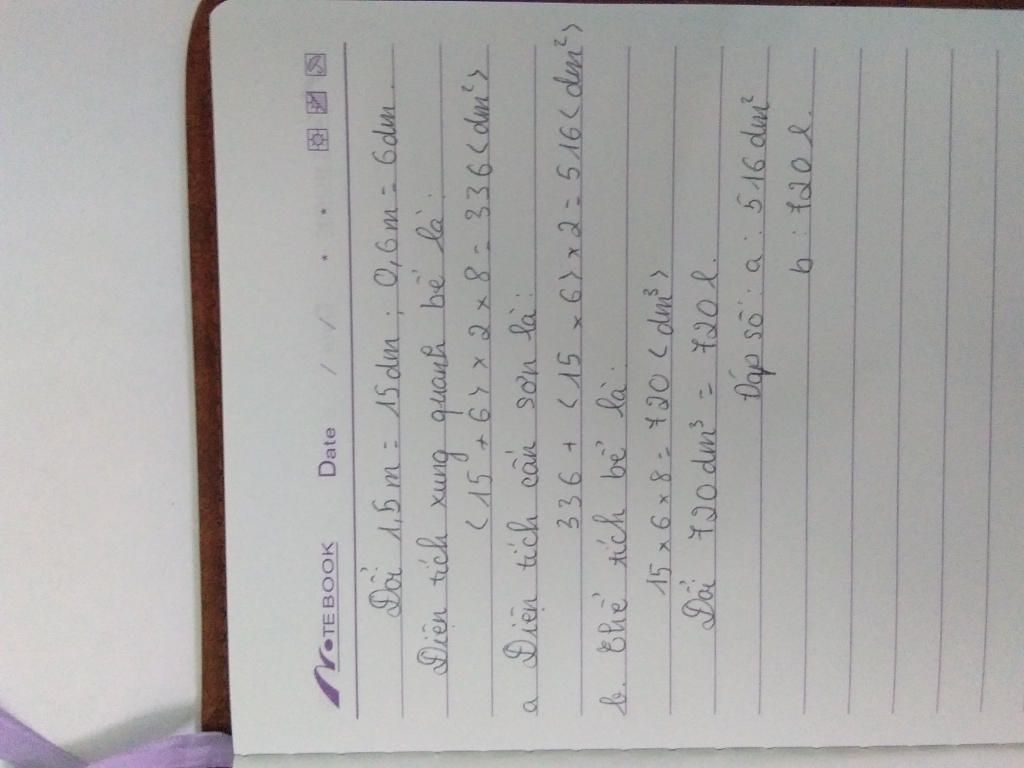 NOTEBOOK Date / /
Đổi 1,5m = 15dm ; 0,6m = 6dm.
Diện tích xung quanh bể là:
(15 + 6) × 2 × 8 = 336 (dm²)
a Diện tích cần sơn là:
336 + (15 × 6) × 2 = 516 (dm²)
b. Thể tích bể là:
15 × 6 × 8 = 720 (dm³)
Đổi 720dm³ = 720l.
Đáp số: a: 516dm²
b: 720l.